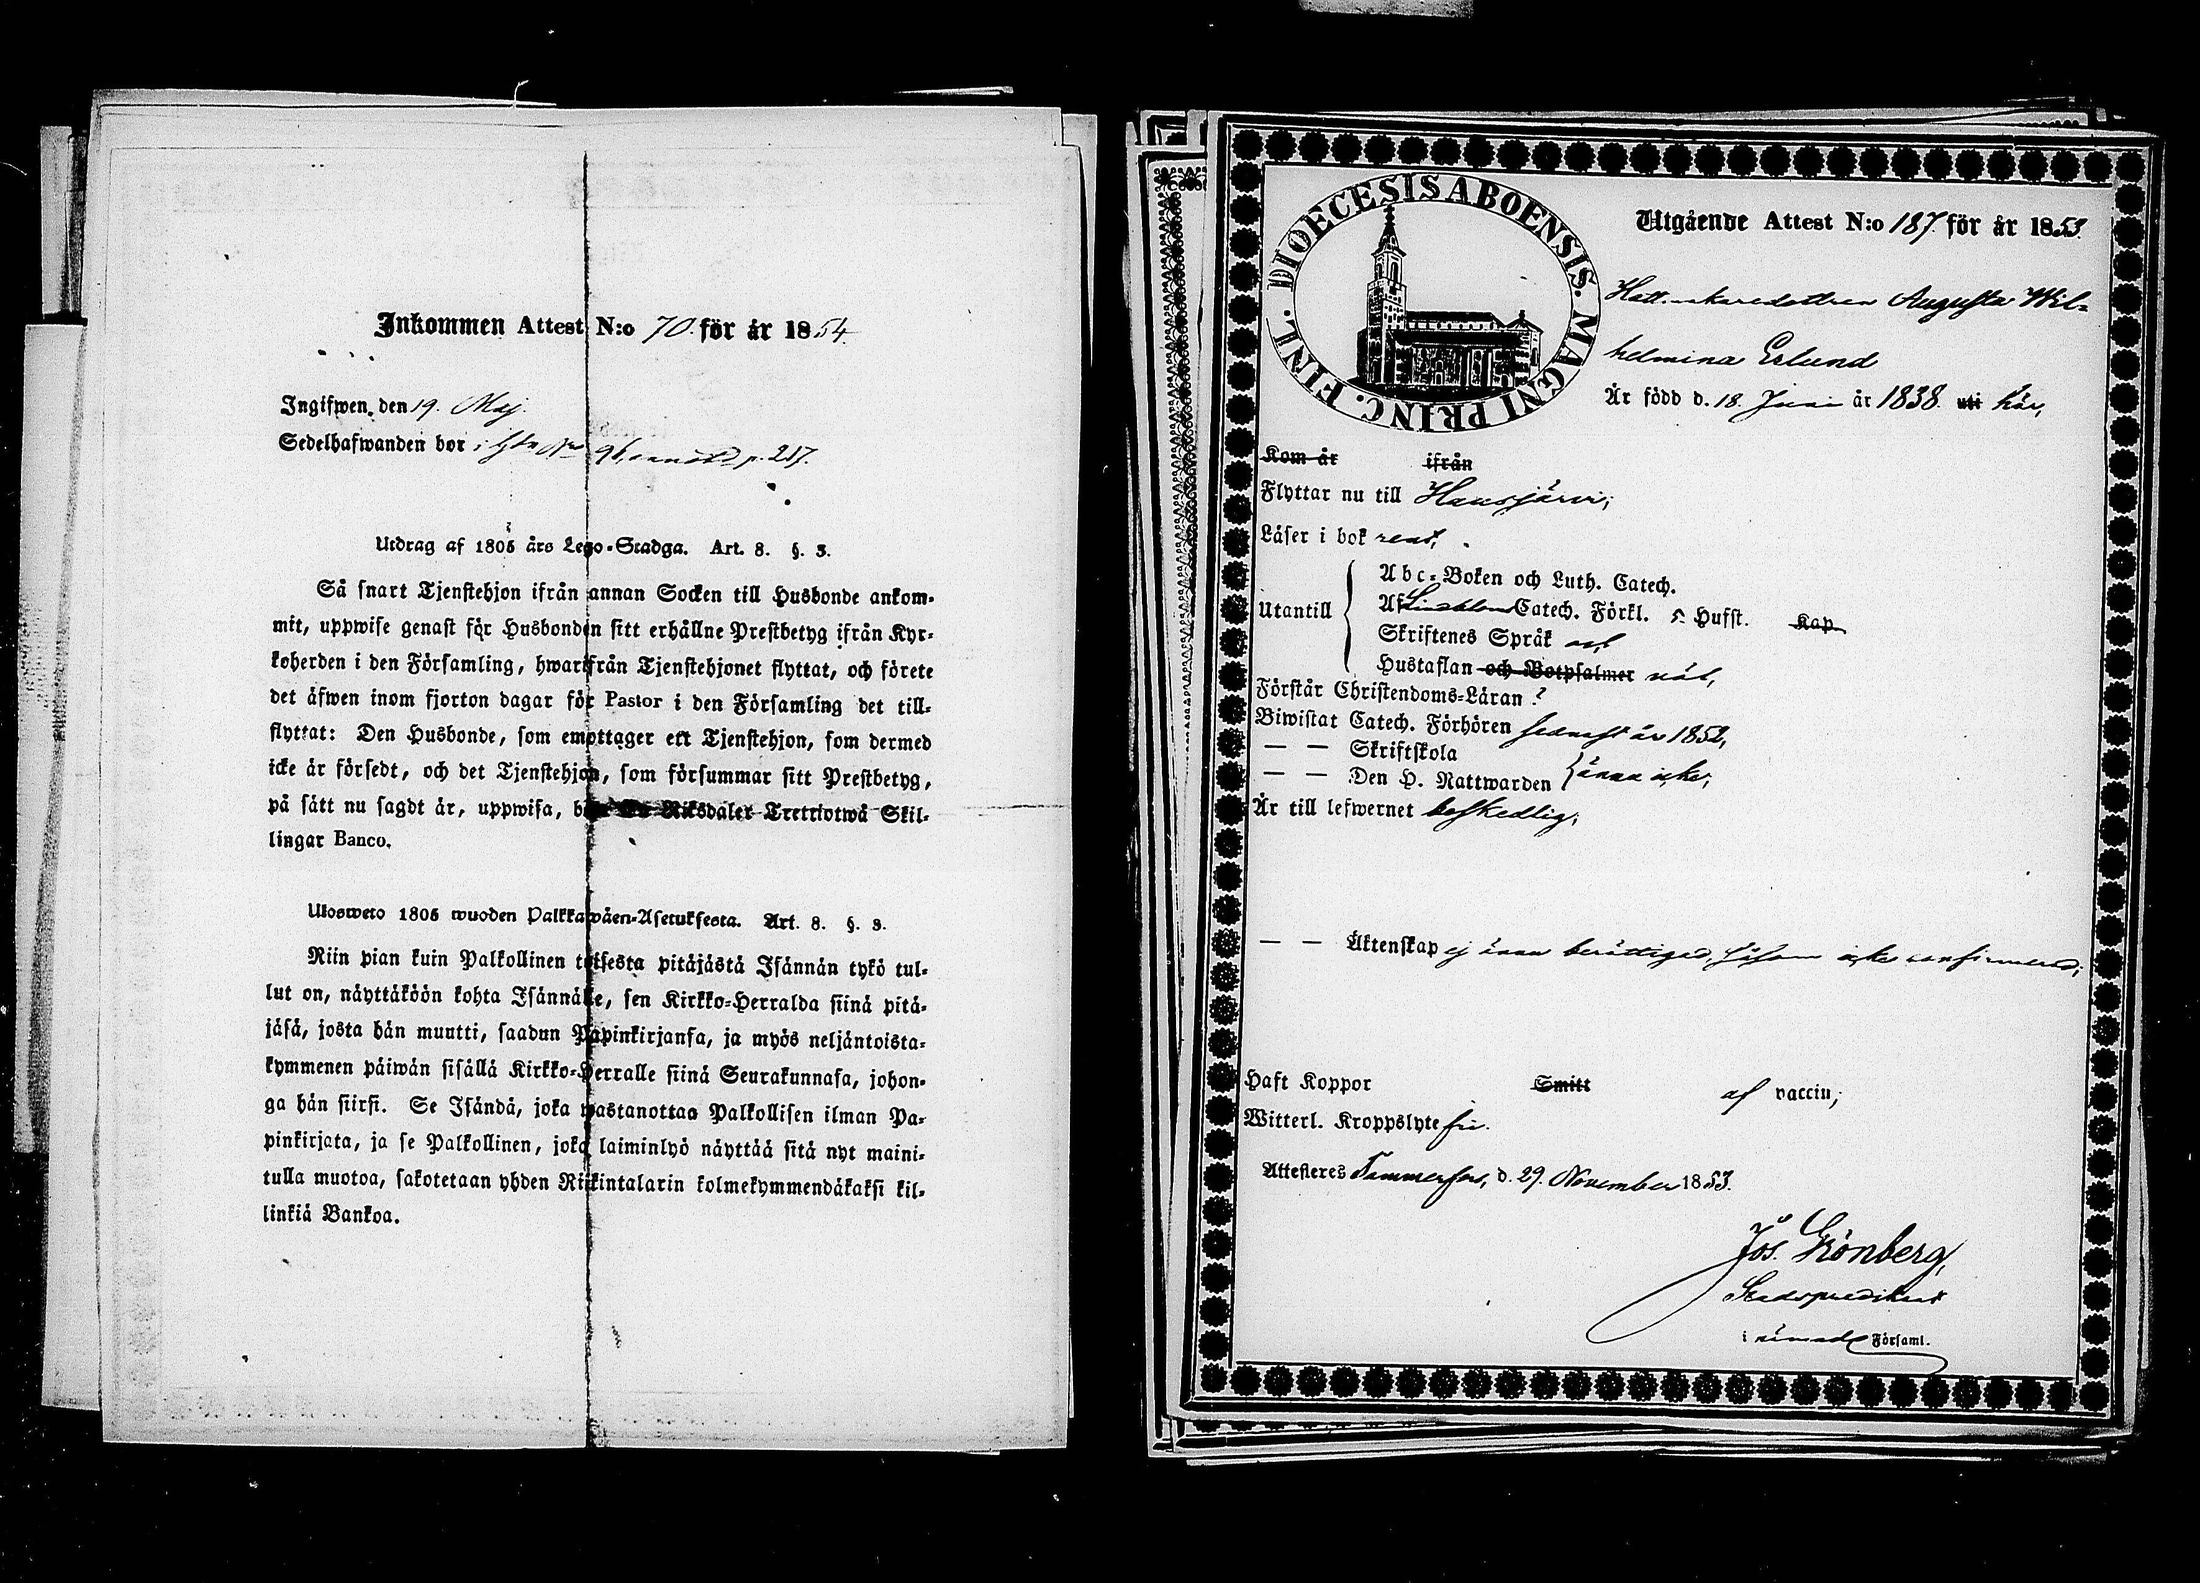 Inkommen Attest N:o 70. för år 1854.
Ingifwen den 19. Maj.
Sedelhafwanden bor i 96, p. 217.
Utdrag af 1805 års Lego-Stadga. Art. 8. §. 3.
Så snart Tjenstehjon ifrån annan Socken till Husbonde ankom-
mit, uppwise genast för Husbonden sitt erhållne Prestbetyg ifrån Kyr-
koherden i den Församling, hwarifrån Tjenstehjonet flyttat, och förete
det äfwen inom fjorton dagar för Pastor i den Församling det till-
flyttat: Den Husbonde, som emottager ett Tjenstehjon, som dermed
icke är försedt, och det Tjenstehjon, som försummar sitt Prestbetyg,
på sätt nu sagdt är, uppwisa, Riksdaler Trettiotwå Skil-
lingar Banco.
Ulosweto 1805 wuoden Palkkawäen-Asetuksesta. Art. 8. §. 3.
Niin pian kuin Palkollinen toisesta pitäjästä Isännän tykö tul-
lut on, näyttäköön kohta Isännälle, sen Kirkko-Herralda siinä pitä-
jäsä, josta hän muutti, saadun Papinkirjansa, ja myös neljäntoista-
kymmenen päiwän sisällä Kirkko-Herralle siinä Seurakunnasa, johon-
ga hän siirsi. Se Isändä, joka wastanottaa Palkollisen ilman Pa-
pinkirjata, ja se Palkollinen, joka laiminlyö näyttää sitä nyt maini-
tulla muotoa, sakotetaan yhden Riikintalarin kolmekymmendäkaksi kil-
linkiä Bankoa.
DIOECESIS ABOENSIS. MAGNI PRINC. FINL.
Utgående Attest N:o 187. för år 1853.
Augusta Wil-
helmina Erlund
Är född d. 18 Juni år 1838. uti här,
Kom år ifrån
Flyttar nu till Hausjärvi,
Läser i bok rent,
Utantill
Abc-Boken och Luth. Catech.
Af Catech. Förkl. 5 Hufst. Kap.
Skriftenes Språk
Hustaflan och Botpsalmer nöd,
Förstår Christendoms-Läran ?
Biwistat Catech. Förhören sednast år 1852,
— — Skriftskola
— — Den H. Nattwarden ännu icke,
Är till lefwernet beskedlig,
— — Äktenskap ej ännu berättigad, såsom icke confirmerad;
Haft Koppor Smitt af vaccin,
Witterl. Kroppslyte fri.
Attesteres Tammerfors, d. 29. November 1853.
Jos. Grönberg,
Stadspredikant
i nämnde Församl.